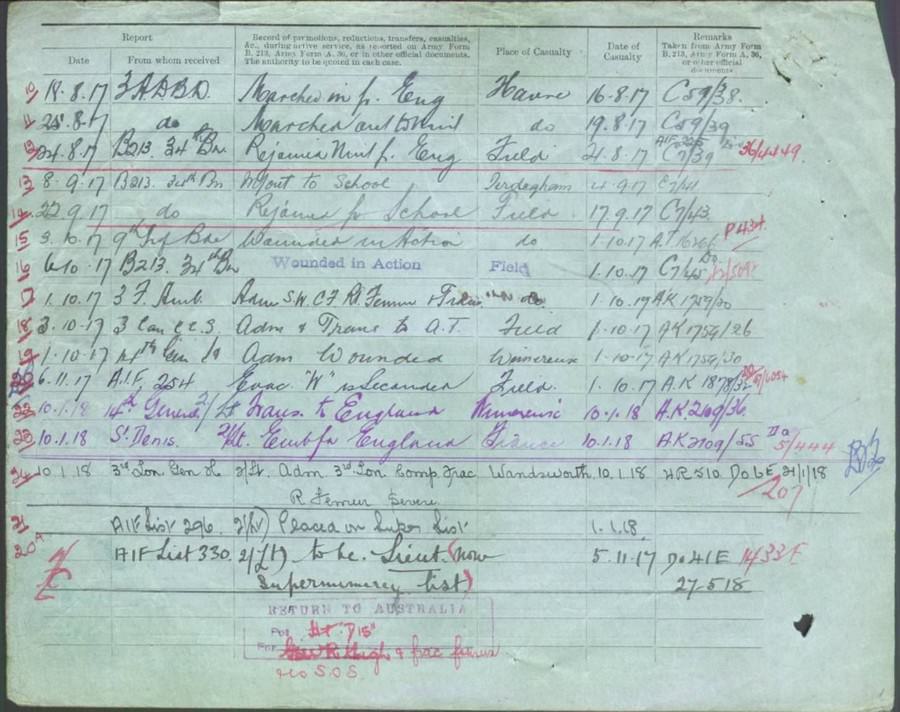 Report
Record of promotions, reductions, transfers, casualties, &c., during active service, as reported on Army Form B. 213, Army Form A. 36, or in other official documents. The authority to be quoted in each case.
Place of Casualty
Date of Casualty
Remarks
Taken from Army Form B. 213, Army Form A. 36, or other official documents
Date From whom received
10 18.8.17 3 A.D.B.D. Marched in fr. Eng Havre 16-8-17 C59/38.
11 25.8.17 do Marched out to Unit do 19.8.17 C59/39
12 24.8.17 B213. 34th Bn. Rejoined Unit fr. Eng Field 21.8.17 C7/39 36/4449
13 8-9.17 B213. 34th Bn to School 4.9.17 C7/41
14 22.9.17 do Rejoined fr School Field 17.9.17 C7/43
15 3.10.17 9th Inf Bde Wounded in Action do 1.10.17
16 6.10.17 B213. 34th Bn Wounded in Action Field 1.10.17
17 1.10.17 3 F. Amb. Adm S.W. C.F. Rt. Femur do 1-10-17 AK 1759/30
18 3-10-17 3 Can C.C.S. Adm & Trans to A.T. Field 1-10-17 AK 1754/26
19 1-10.17 14th Gen Adm Wounded Wimereux 1-10-17 AK 1754/30
6.11.17 A.I.F. 254 Evac. "W" is Seconded Field. 1.10.17 A.K 1878/32
22 10.1.18 14th General 2/Lt Trans. to England Wimereux 10.1.18 A.K 2109/36
23 10.1.18 St Denis. 2/Lt. Emb fr England France 10.1.18 AK2109/55 5/444
24 10.1.18 3rd Lon Gen H 2/Lt. Adm. 3rd Lon Comp Frac Wandsworth 10.1.18 H.R 510 Do 6E 21/1/18
R Femur Severe 207
21 AIF List 296. 2/Lt) Placed on Super List 1.1.18.
20A AIF List 330. 2/(Lt) to be. Lieut. (Now 5.11.17 Do 41E 1433E
Supernumery list) 27-5-18
RETURN TO AUSTRALIA
Per H.T. "D15"
For & frac femur